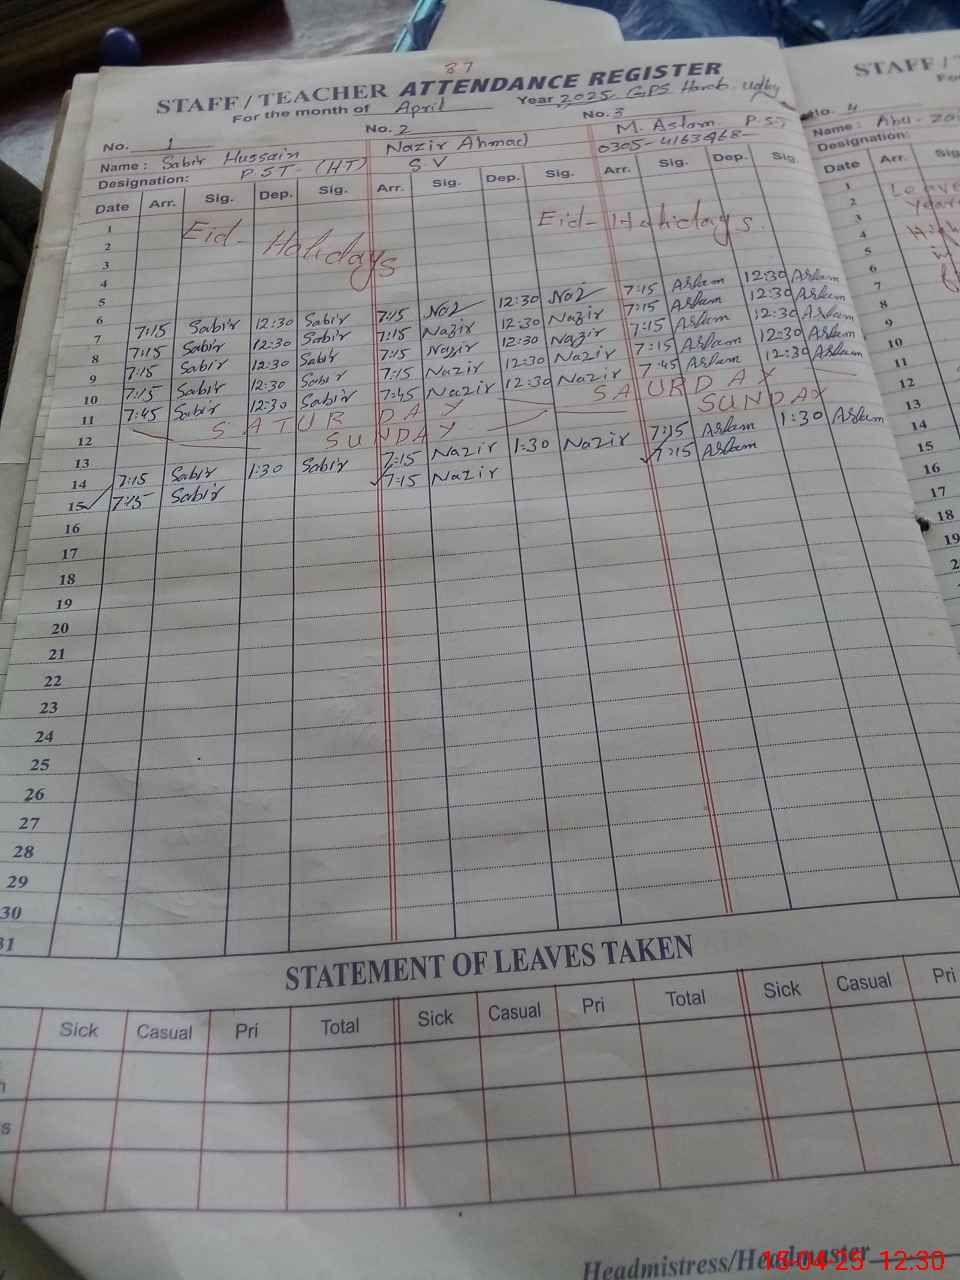 87
STAFF / TEACHER ATTENDANCE REGISTER
For the month of April Year 2025 GPS
No. 1 No. 2 No. 3
Name : Sabir Hussain Nazir Ahmad M. Aslam P.S.T
Designation: P S T - (HT) S V 0305-4163468-
Date Arr. Sig. Dep. Sig. Arr. Sig. Dep. Sig. Arr. Sig. Dep. Sig.
1
2 Eid - Holidays Eid - Holidays.
3
4
5
6
7 7:15 Sabir 12:30 Sabir 7:15 12:30 7:15 Aslam 12:30 Aslam
8 7:15 Sabir 12:30 Sabir 7:15 Nazir 12:30 Nazir 7:15 Aslam 12:30 Aslam
9 7:15 Sabir 12:30 Sabir 7:15 Nazir 12:30 Nazir 7:15 Aslam 12:30 Aslam
10 7:15 Sabir 12:30 Sabir 7:15 Nazir 12:30 Nazir 7:15 Aslam 12:30 Aslam
11 7:45 Sabir 12:30 Sabir 7:45 Nazir 12:30 Nazir 7:45 Aslam 12:30 Aslam
12 SATUR DAY SATURDAY
13 SUNDAY SUNDAY
14 7:15 Sabir 1:30 Sabir 7:15 Nazir 1:30 Nazir 7:15 Aslam 1:30 Aslam
15 7:15 Sabir 7:15 Nazir 7:15 Aslam
16
17
18
19
20
21
22
23
24
25
26
27
28
29
30
31
STATEMENT OF LEAVES TAKEN
Sick Casual Pri Total Sick Casual Pri Total Sick Casual Pri
Headmistress/Headmaster
STAFF /
No. 4
Name : Abu-
Designation:
Date Arr. Sig
1 Leave
2
3
4
5
6
7
8
9
10
11
12
13
14
15
16
17
18
19
15-04-25 12:30